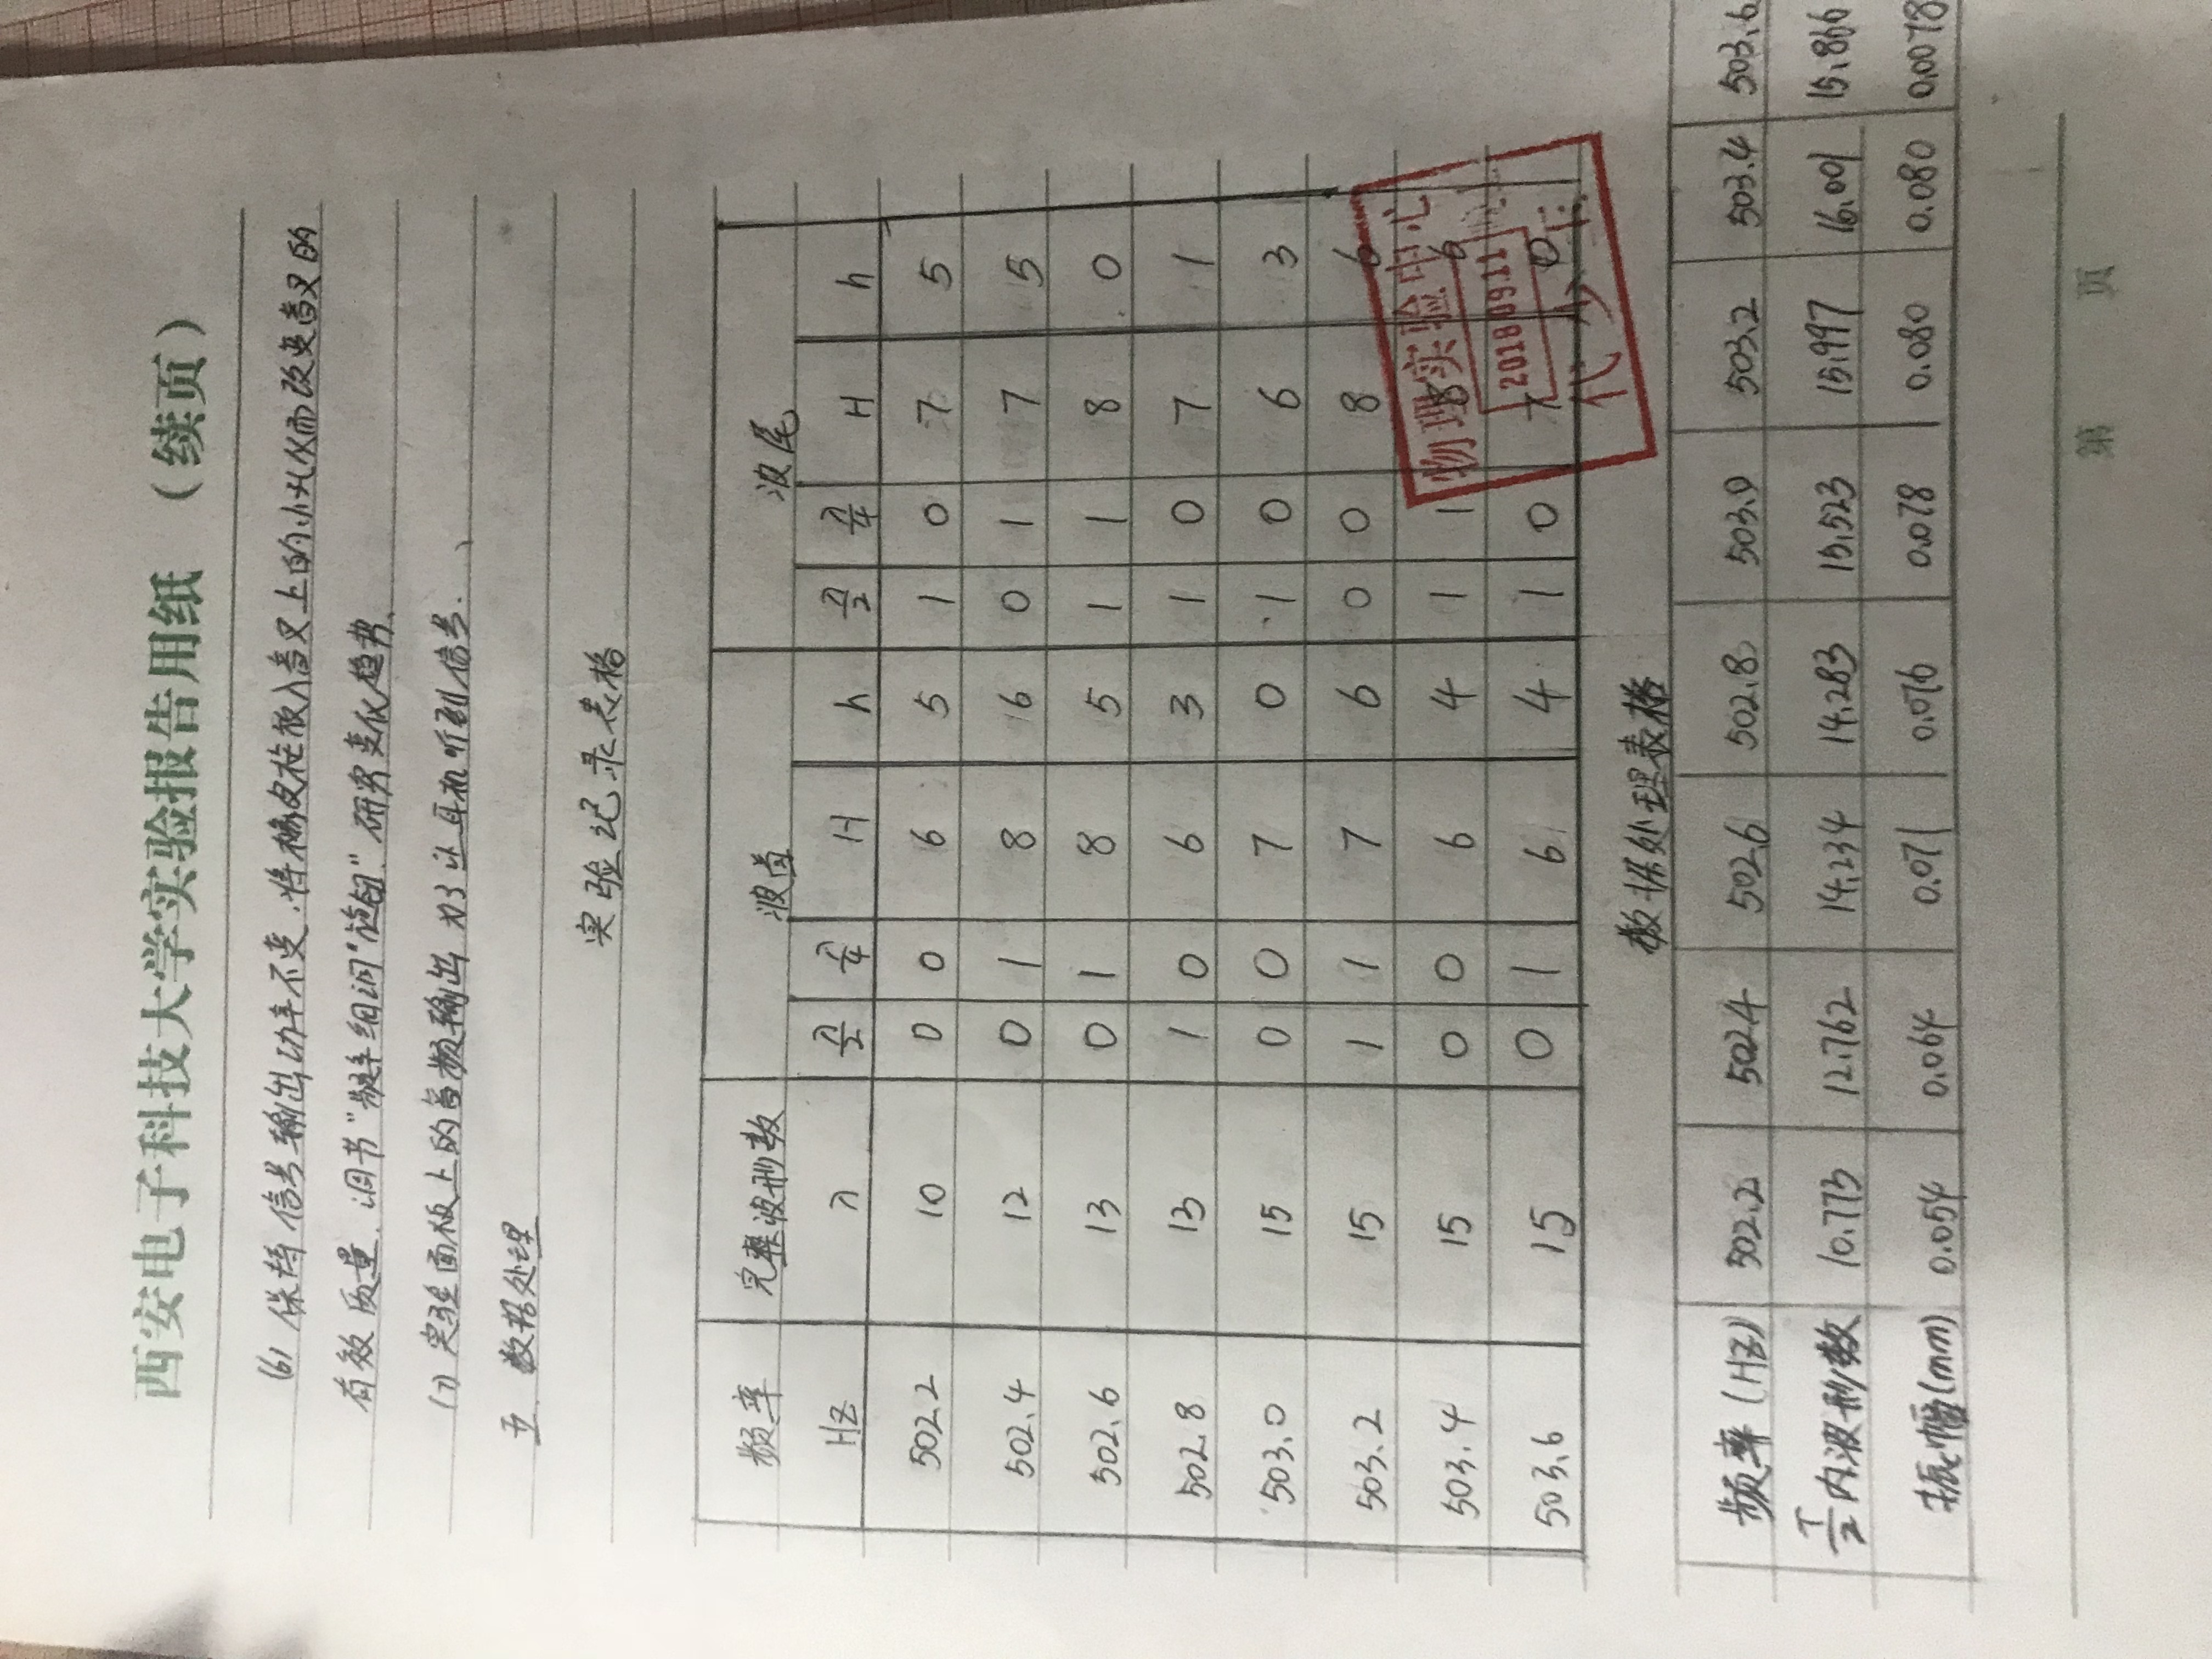 西安电子科技大学实验报告用纸 （续页）
(6) 保持信号输出功率不变,将橡皮柱放入音叉上的小孔从而改变音叉的
有效质量.调节"频率细调"旋钮".研究变化趋势.
(7) 实验面板上的音频输出 为了让耳机听到信号.
五.数据处理
实验记录表格
频率 完整波形数 波首 波尾
Hz λ λ/2 λ/4 H h λ/2 λ/4 H h
502.2 10 0 0 6 5 1 0 7 5
502.4 12 0 1 8 6 0 1 7 5
502.6 13 0 1 8 5 1 1 8 0
502.8 13 1 0 6 3 1 0 7 1
503.0 15 0 0 7 0 1 0 6 3
503.2 15 1 1 7 6 0 0 8 6
503.4 15 0 0 6 4 1 1 8 6
503.6 15 0 1 6 4 1 0 7 0
物理实验中心
2018.09.11
代少玉
数据处理表格
频率(HZ) 502.2 502.4 502.6 502.8 503.0 503.2 503.4 503.6
T/2内波形数 10.773 12.762 14.234 14.283 15.523 15.997 16.001 15.866
振幅(mm) 0.054 0.064 0.071 0.076 0.078 0.080 0.080 0.0078
第 页